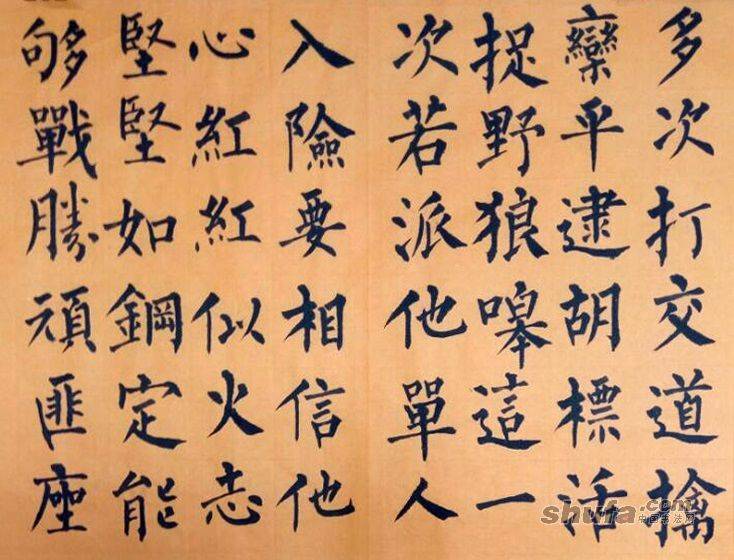 多次打交道擒
欒平逮胡標活
捉野狼嗥這一
次若派他單人
入險要相信他
心紅紅似火志
堅堅如鋼定能
够戰勝頑匪座
shufa.com
中国书法网